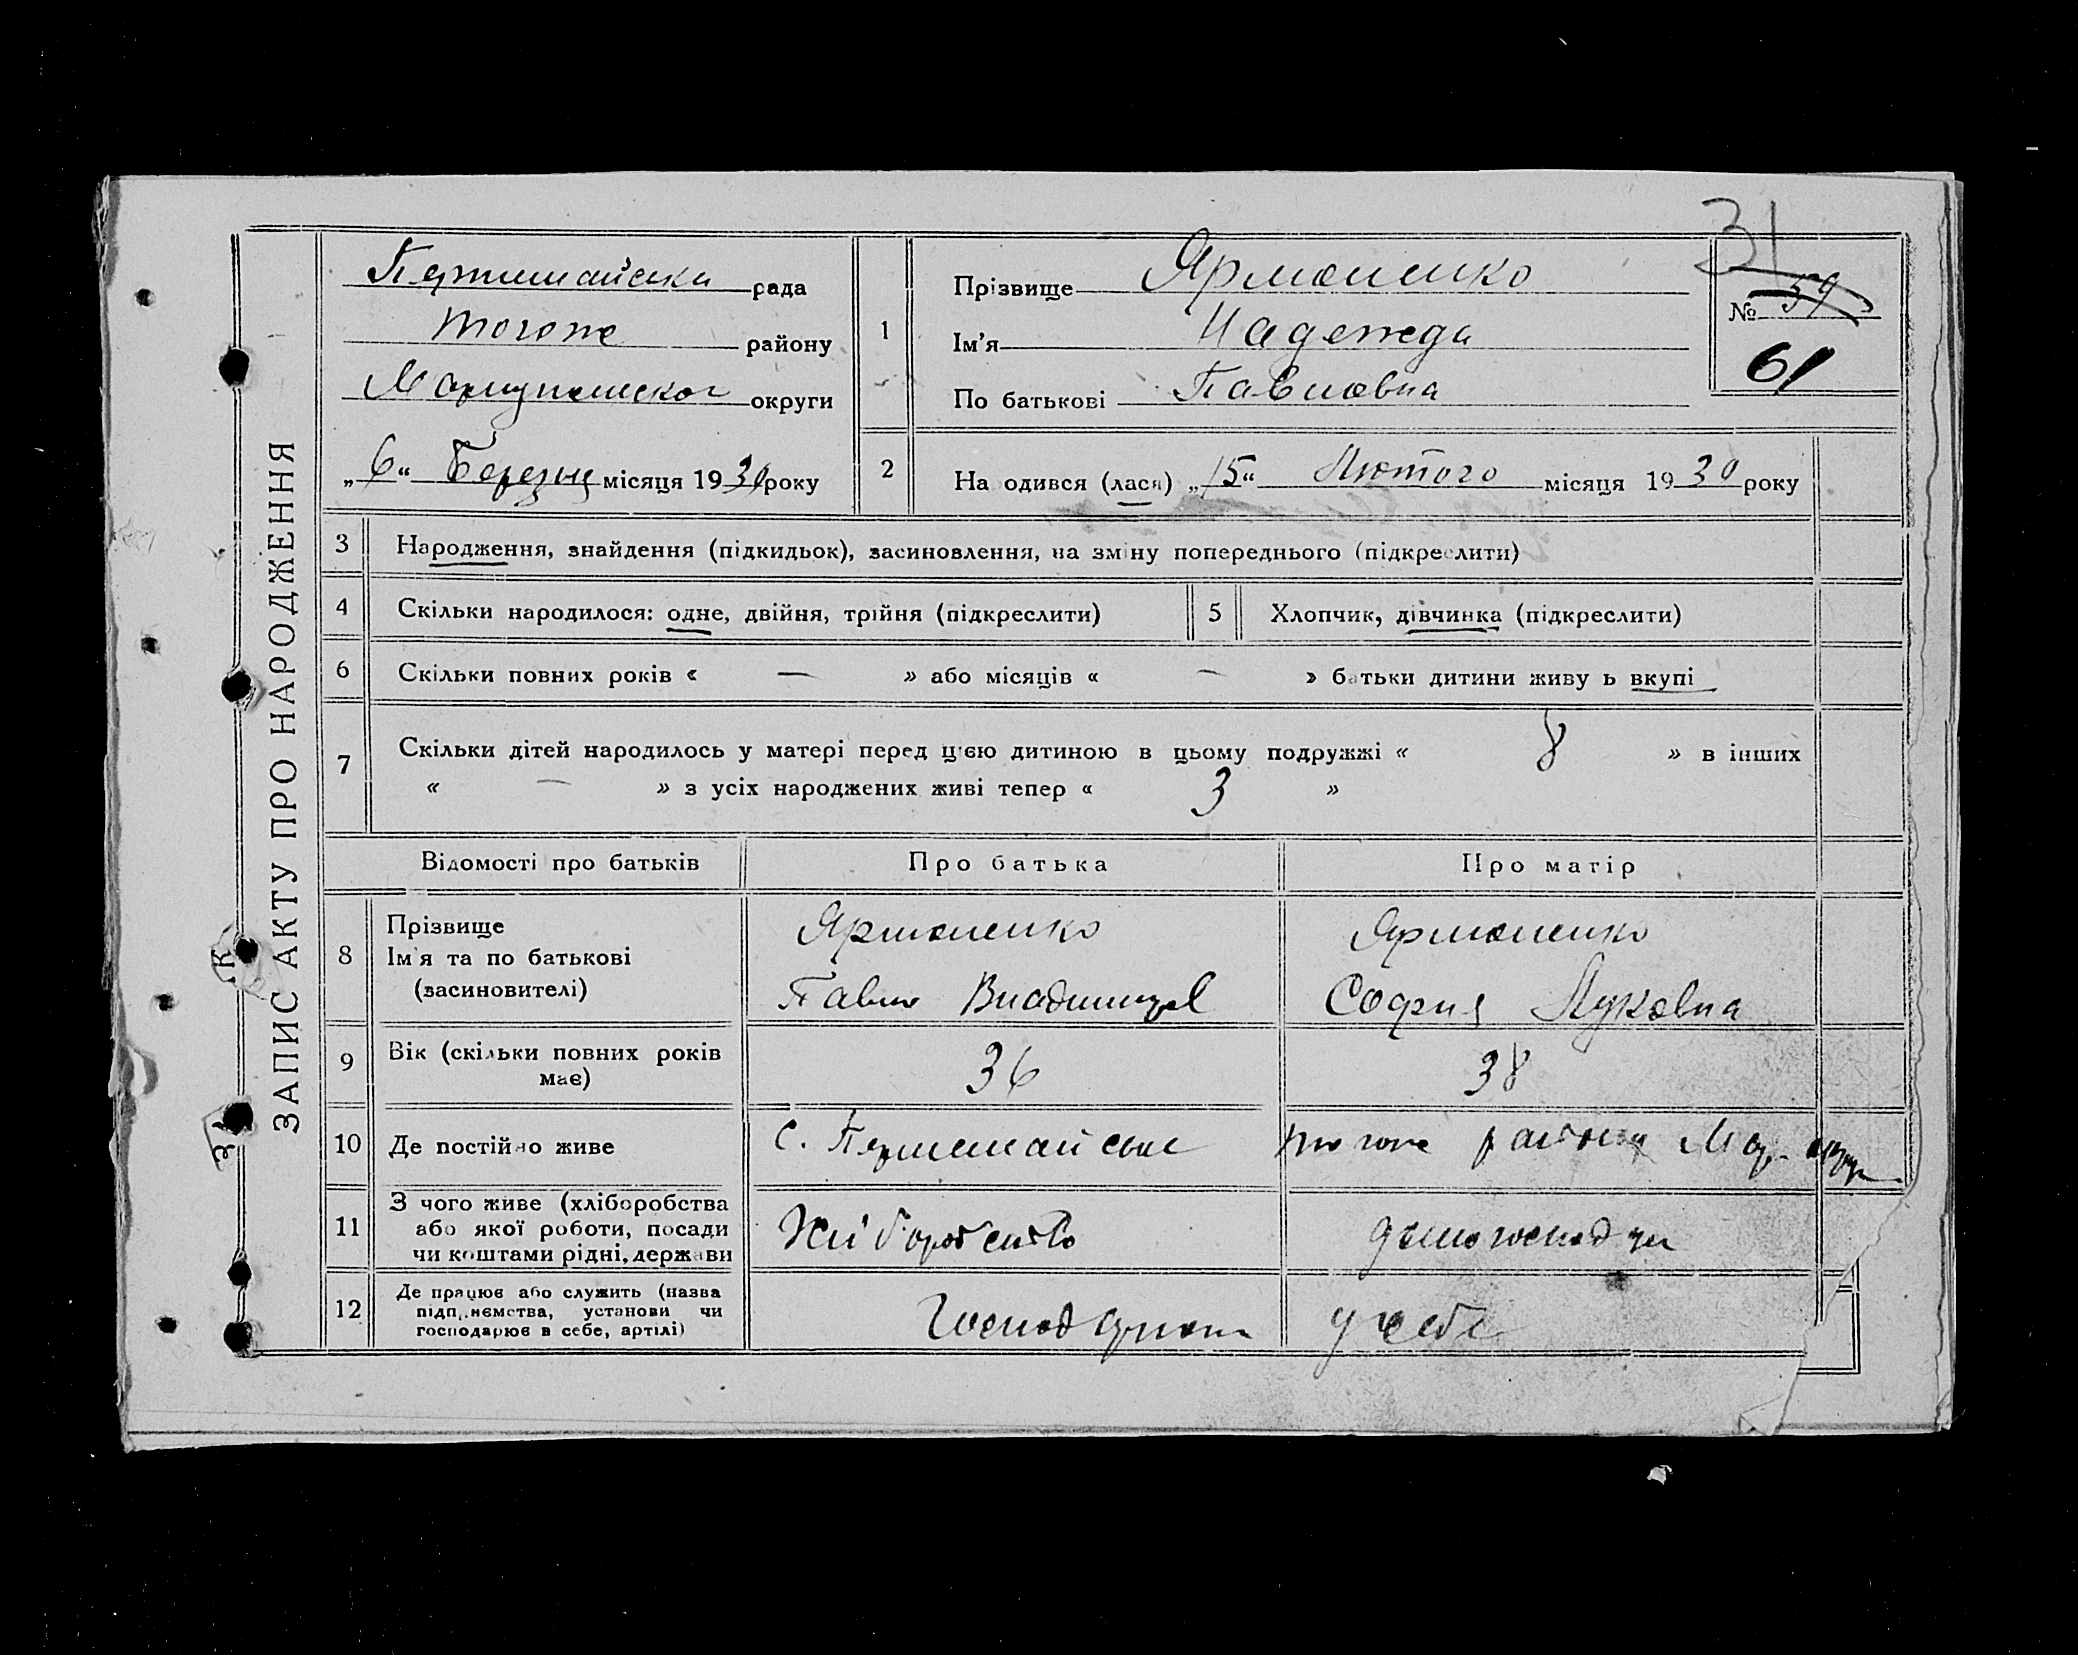 ЗАПИС АКТУ ПРО НАРОДЖЕННЯ
31
рада
тогож району
округи
„6“ Березня місяця 1930 року
1
Прізвище Ярмоленко
Ім'я Надежда
По батькові Павловна
№ 59
61
2
На одився (лася) „15“ Лютого місяця 1930 року
3 Народження, знайдення (підкидьок), засиновлення, на зміну попереднього (підкреслити)
4 Скільки народилося: одне, двійня, трійня (підкреслити)
5 Хлопчик, дівчинка (підкреслити)
6 Скільки повних років « — » або місяців « — » батьки дитини живу ь вкупі
7 Скільки дітей народилось у матері перед цією дитиною в цьому подружжі « 8 » в інших
« — » з усіх народжених живі тепер « 3 »
Відомості про батьків Про батька Про матір
8 Прізвище
Ім'я та по батькові
(засиновителі)
Ярмоленко
Павло
Ярмоленко
София Луковна
9 Вік (скільки повних років має)
36
38
10 Де постійно живе
с. тогож району Мар. окру
11 З чого живе (хліборобства
або якої роботи, посади
чи коштами рідні, держави
Хліборобство
12 Де працює або служить (назва
підприємства, установи чи
господарює в себе, артілі)
у себе